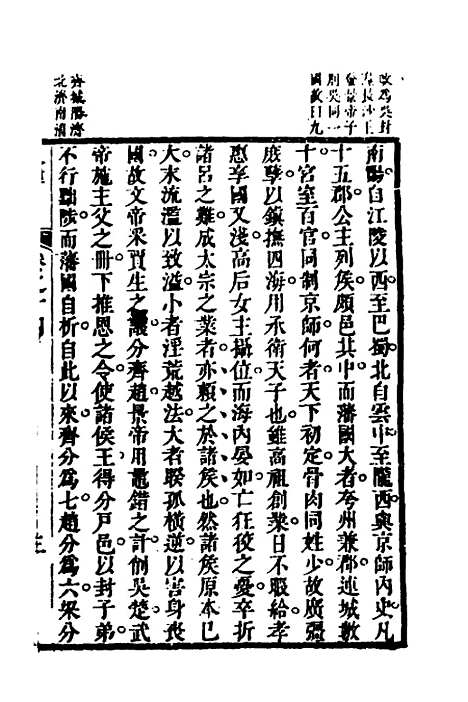 改爲吳封
長沙王
景帝子
則吳同一
國故曰九
南陽自江陵以西至巴蜀北自雲中至隴西與京師內史凡
十五郡公主列侯頗邑其中而藩國大者夸州兼郡連城數
十宮室百官同制京師何者天下初定骨肉同姓少故廣彊
庶孽以鎮撫四海用承衛天子也雖高祖創業日不暇給孝
惠享國又淺高后女主攝位而海內晏如亡狂狡之憂卒折
諸呂之難成太宗之業者亦賴之於諸侯也然諸侯原本已
大末流濫以致溢小者淫荒越法大者睽孤橫逆以害身喪
國故文帝采賈生之議分齊趙景帝用鼂錯之計削吳楚武
帝施主父之冊下推恩之令使諸侯王得分戶邑以封子弟
不行黜陟而藩國自析自此以來齊分爲七趙分爲六梁分
齊城陽濟
北濟南淄